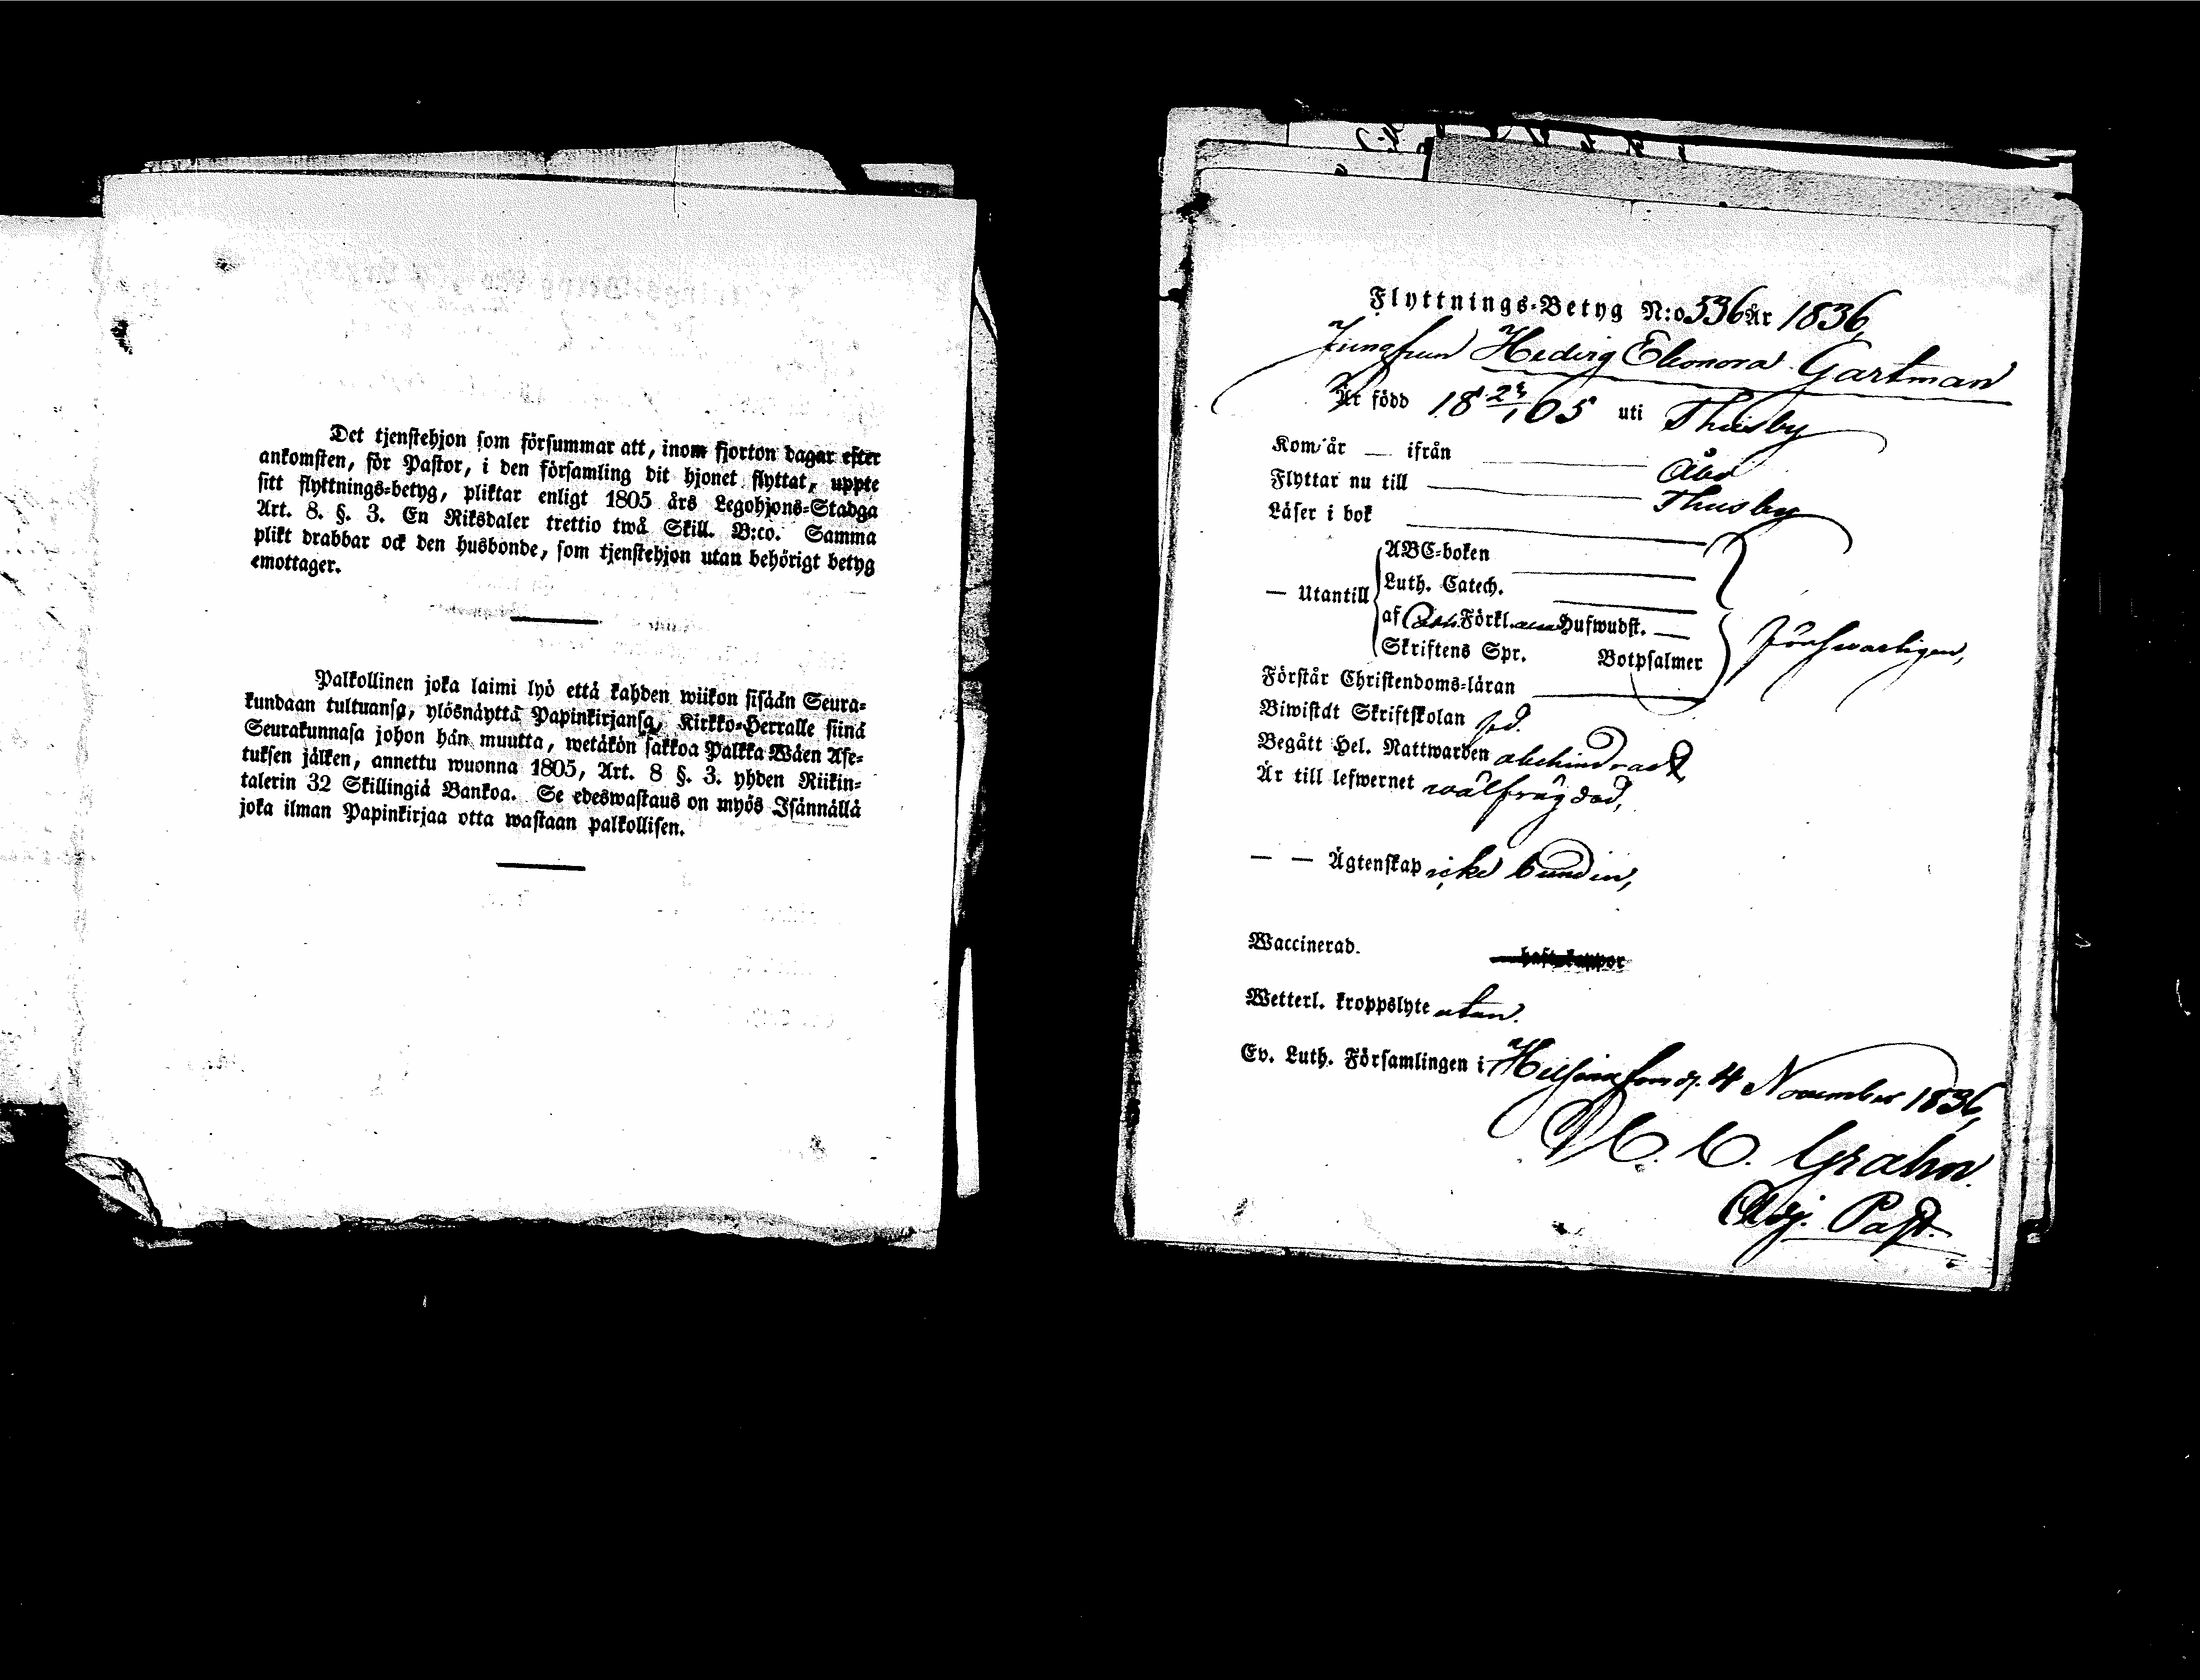 Det tjenstehjon som försummar att, inom fjorton dagar efter
ankomsten, för Pastor, i den församling dit hjonet flyttat, uppte
sitt flyttnings-betyg, pliktar enligt 1805 års Legohjons-Stadga
Art. 8. §. 3. En Riksdaler trettio twå Skill. B:co. Samma
plikt drabbar ock den husbonde, som tjenstehjon utan behörigt betyg
emottager.
Palkollinen joka laimi lyö että kahden wiikon sisään Seura-
kundaan tultuansa, ylösnäyttä Papinkirjansa, Kirkko-Herralle siinä
Seurakunnasa johon hän muutta, wetäkön sakkoa Palkka Wäen Ase-
tuksen jälken, annettu wuonna 1805, Art. 8 §. 3. yhden Riikin-
talerin 32 Skillingiä Bankoa. Se edeswastaus on myös Isännällä
joka ilman Papinkirjaa otta wastaan palkollisen.
Flyttnings-Betyg N:o 336 År 1836,
Jungfrun Hedvig Eleonora Gartman
Är född 18 05 uti Thusby
Kom år — ifrån Åbo
Flyttar nu till Thusby
Läser i bok
— Utantill ABC-boken
Luth. Catech.
af Förkl. Hufwudst. —
Skriftens Spr. Botpsalmer försvarligen,
Förstår Christendoms-läran
Biwistat Skriftskolan
Begått Hel. Nattwarden obehindradt,
Är till lefwernet wälfrägdad,
— — Ägtenskap icke bunden,
Waccinerad.
Wetterl. kroppslyte utan.
Ev. Luth. Församlingen i Helsingfors d. 4 November 1836,
Grahn.
Adj. Past.